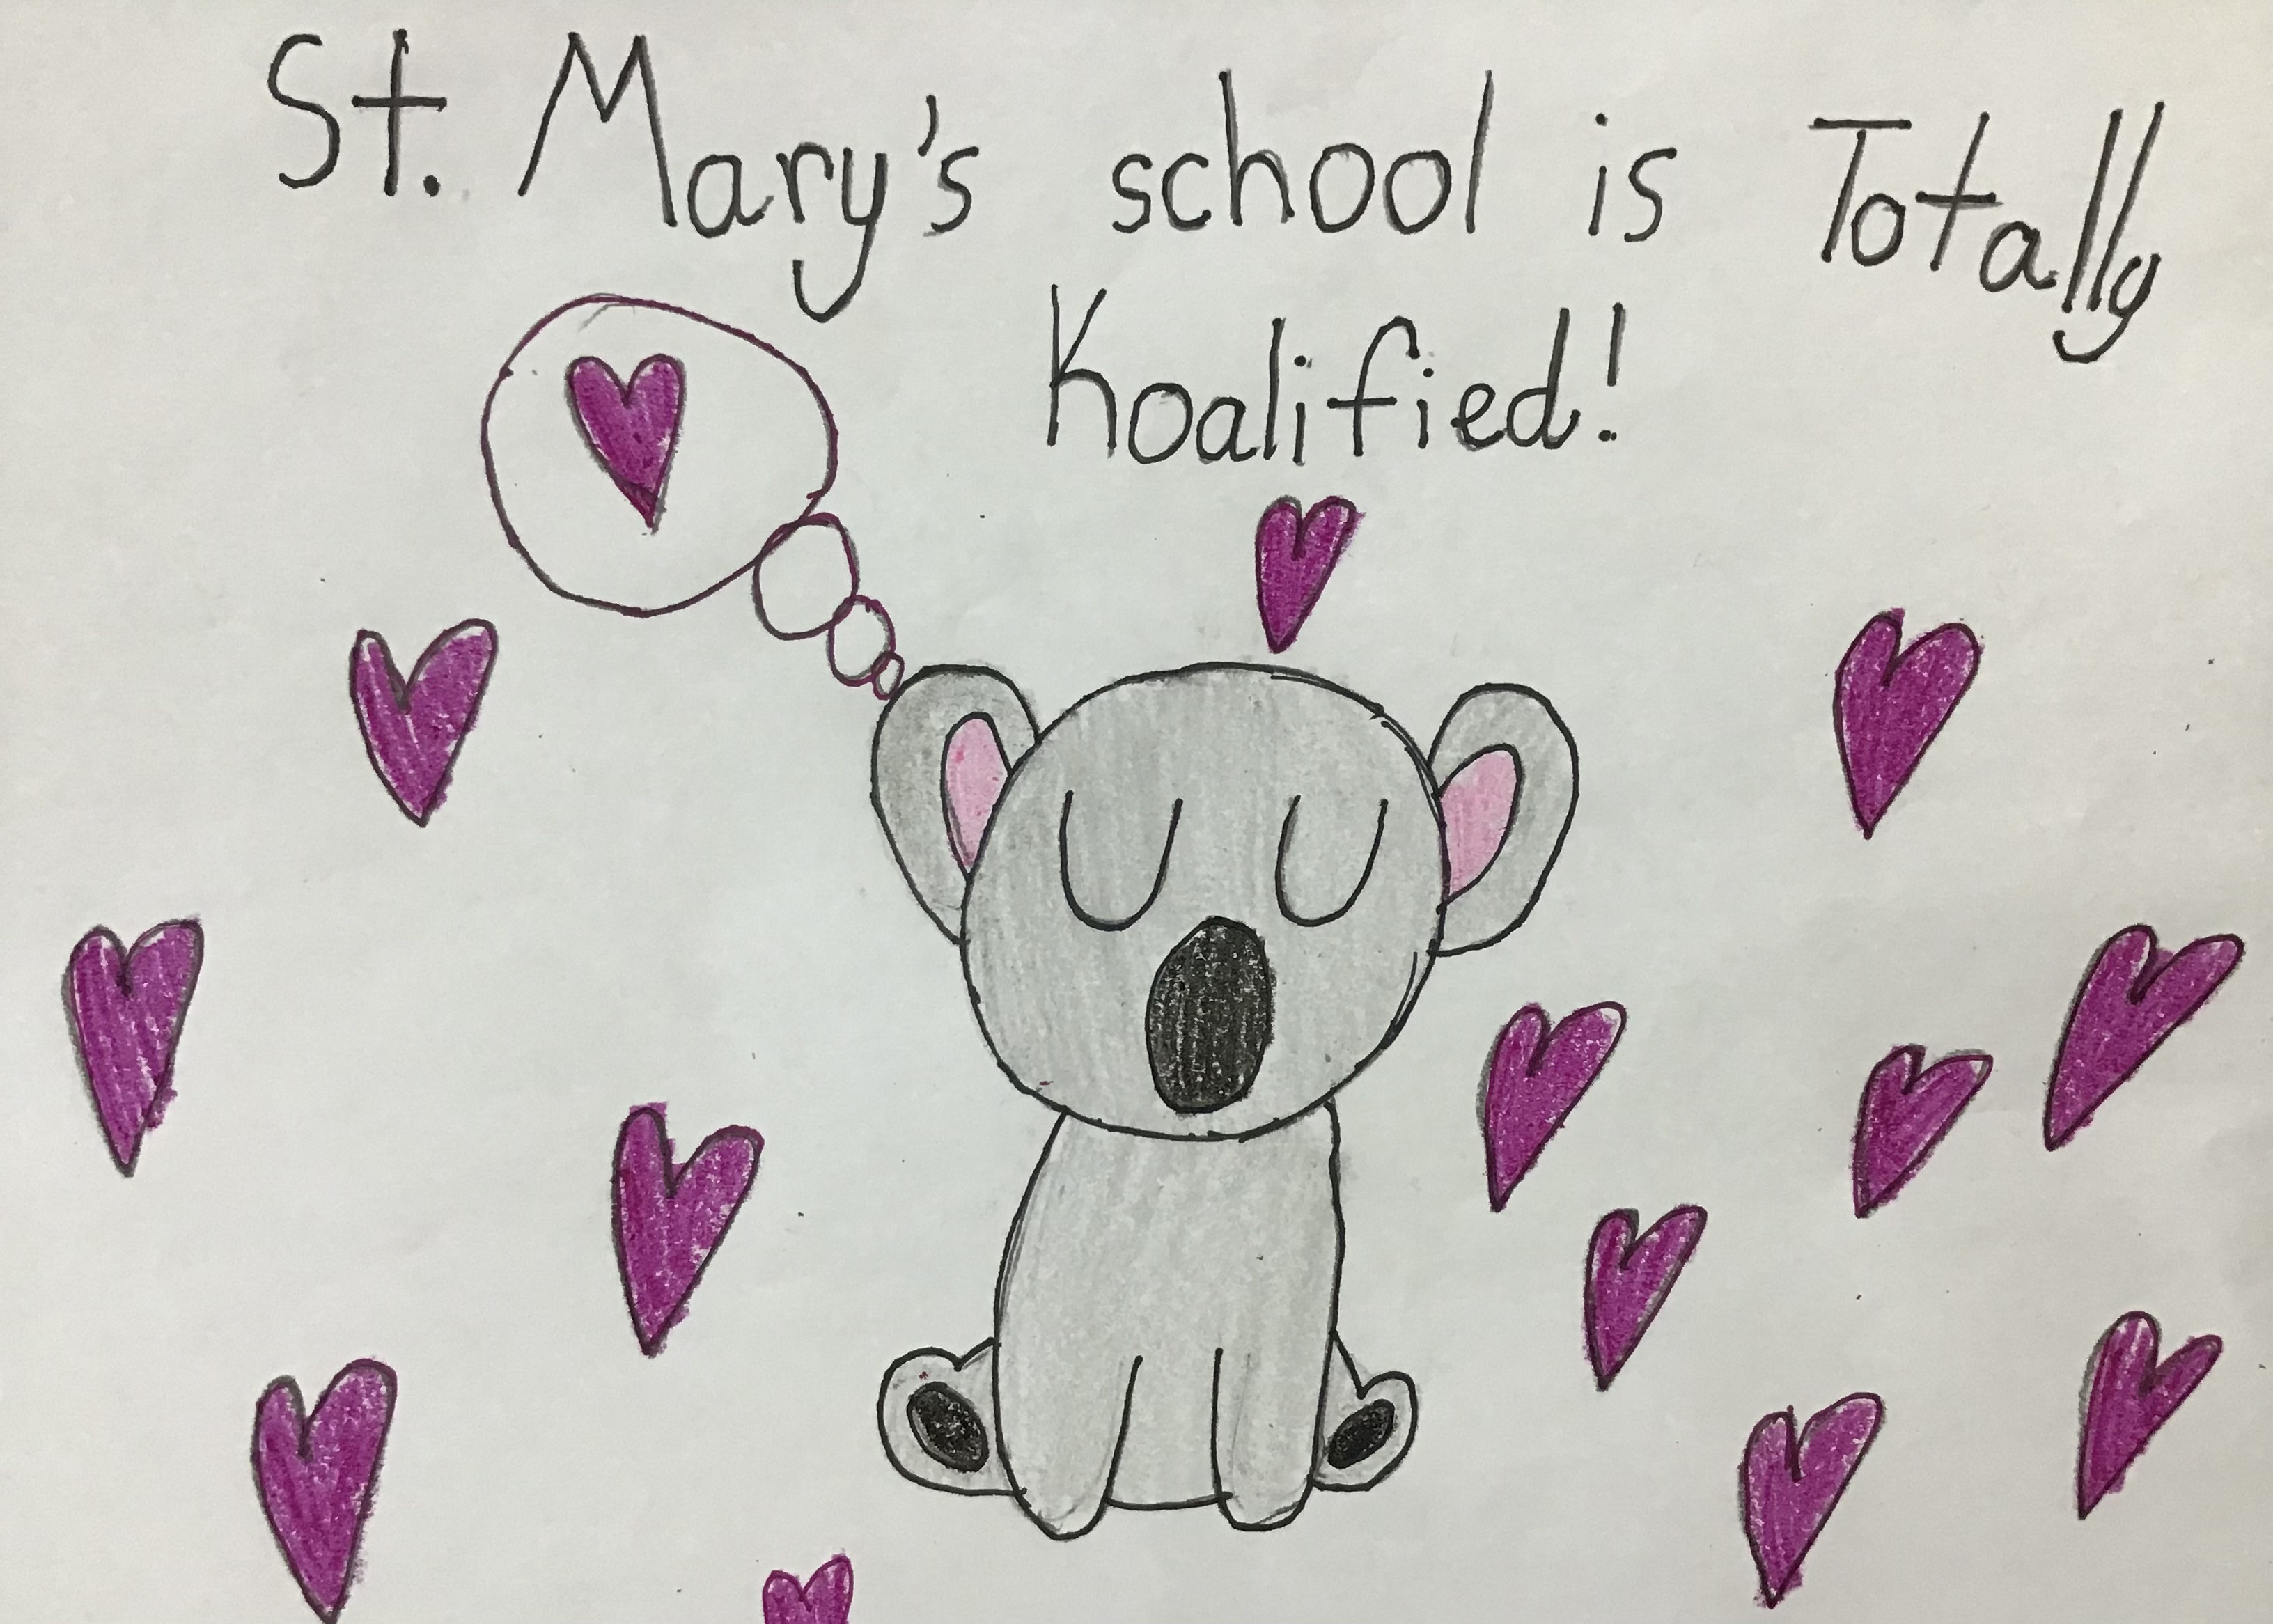 St. Mary's school is Totally
Koalified!